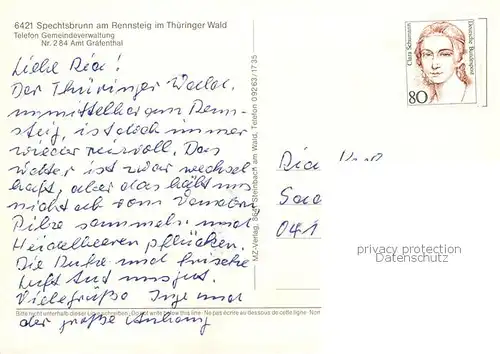 6421 Spechtsbrunn am Rennsteig im Thüringer Wald
Telefon Gemeindeverwaltung
Nr. 284 Amt Gräfenthal
Liebe Ria!
Der Thüringer Wald,
unmittelbar am Renn-
steig, ist doch immer
wieder reizvoll. Das
Wetter ist zwar wechsel
haft, aber das hält uns
nicht ab vom Wandern
Pilze sammeln und
Heidelbeeren pflücken.
Die Ruhe und frische
Luft tut uns gut.
Viele Grüße Inge und
der große Anhang
Bitte nicht unterhalb dieser Linie schreiben · Do not write below this line · Ne pas écrire au dessous de cette ligne · Non
MZ-Verlag, Steinbach am Wald, Telefon 09263/1735
Clara Schumann
Deutsche Bundespost
80
Ria
041
privacy protection
Datenschutz